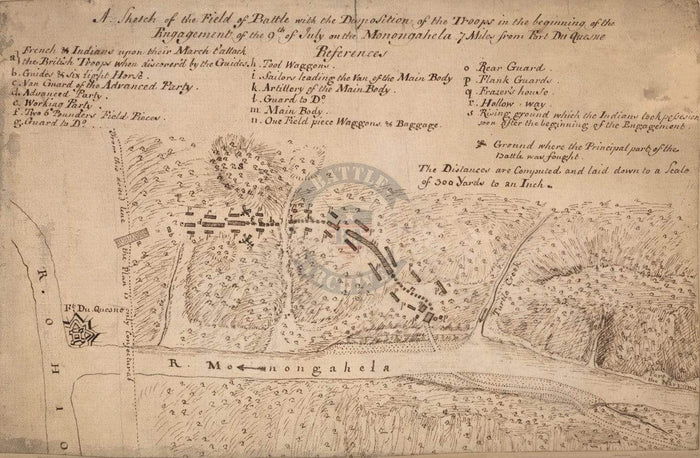 A Sketch of the Field of Battle with the Disposition of the Troops in the beginning of the
Engagement of the 9th of July on the Monongahela 7 Miles from Fort Du Quesne
References
a French & Indians upon their March t'attack
the British Troops when discover'd by the Guides.
b. Guides & six light Horse.
c. Van Guard of the Advanced Party.
d. Advanced Party.
e. Working Party.
f. Two 6 Pounders Field Pieces.
g. Guard to Do.
h. Tool Waggons.
i. Sailors leading the Van of the Main Body
k. Artillery of the Main Body.
l. Guard to Do
m. Main Body.
n. One Field piece Waggons & Baggage
o Rear Guard.
p. Flank Guards.
q. Frazer's house.
r. Hollow-way
s Rising ground which the Indians took possession
soon after the beginning of the Engagement
Ground where the Principal party of the
Battle was fought.
The Distances are Computed and laid down to a Scale
of 300 Yards to an Inch.
From this dotted line
the Plan is only conjectural
Turtle Creek
Ft. Du. Quesne
R. OHIO
R. Monongahela
BATTLE